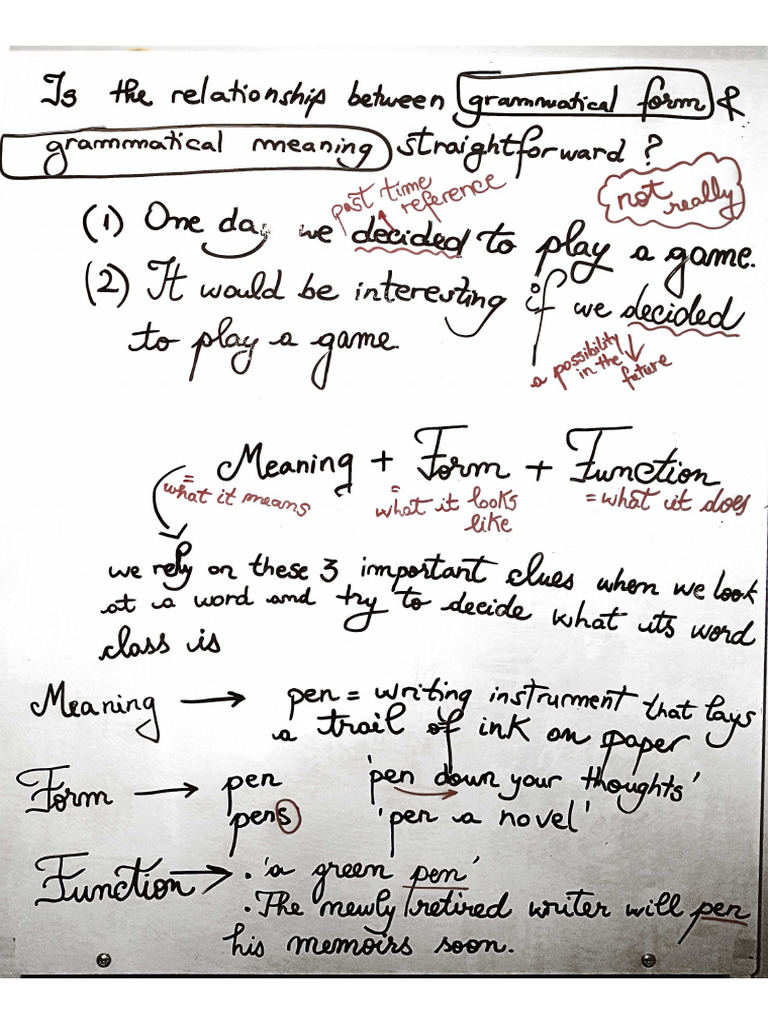 Is the relationship between grammatical form &
grammatical meaning straightforward?
not really
past time
reference
(1) One day we decided to play a game.
(2) It would be interesting if we decided
to play a game.
a possibility
in the
future
Meaning + Form + Function
= what it means
= what it looks
like
= what it does
we rely on these 3 important clues when we look
at a word and try to decide what its word
class is
Meaning → pen = writing instrument that lays
a trail of ink on paper
Form → pen 'pen down your thoughts'
pens 'pen a novel'
Function → . 'a green pen'
. The newly retired writer will pen
his memoirs soon.